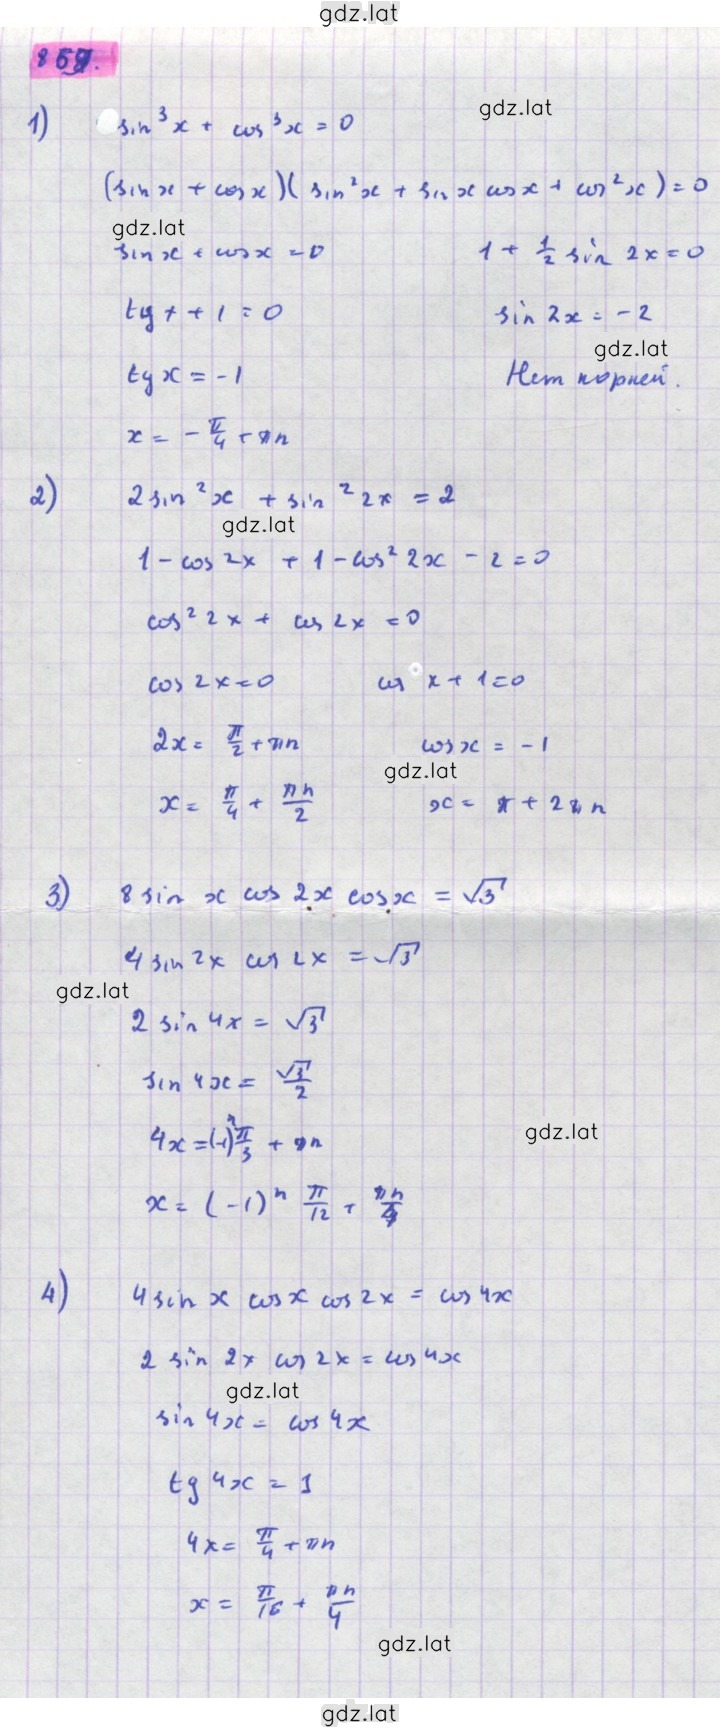 gdz.lat
859.
gdz.lat
1) sin³x + cos³x = 0
(sin x + cos x)(sin²x + sin x cos x + cos²x) = 0
gdz.lat
sin x + cos x = 0    1 + 1/2 sin 2x = 0
tg x + 1 = 0    sin 2x = -2
gdz.lat
tg x = -1    Нет корней.
x = -π/4 + πn
2) 2 sin²x + sin²2x = 2
gdz.lat
1 - cos 2x + 1 - cos²2x - 2 = 0
cos²2x + cos 2x = 0
cos 2x = 0    cos x + 1 = 0
2x = π/2 + πn    cos x = -1
gdz.lat
x = π/4 + πn/2    x = π + 2πn
3) 8 sin x cos 2x cos x = √3
4 sin 2x cos 2x = √3
gdz.lat
2 sin 4x = √3
sin 4x = √3/2
gdz.lat
4x = (-1)ⁿ π/3 + πn
x = (-1)ⁿ π/12 + πn/4
4) 4 sin x cos x cos 2x = cos 4x
2 sin 2x cos 2x = cos 4x
gdz.lat
sin 4x = cos 4x
tg 4x = 1
4x = π/4 + πn
x = π/16 + πn/4
gdz.lat
gdz.lat